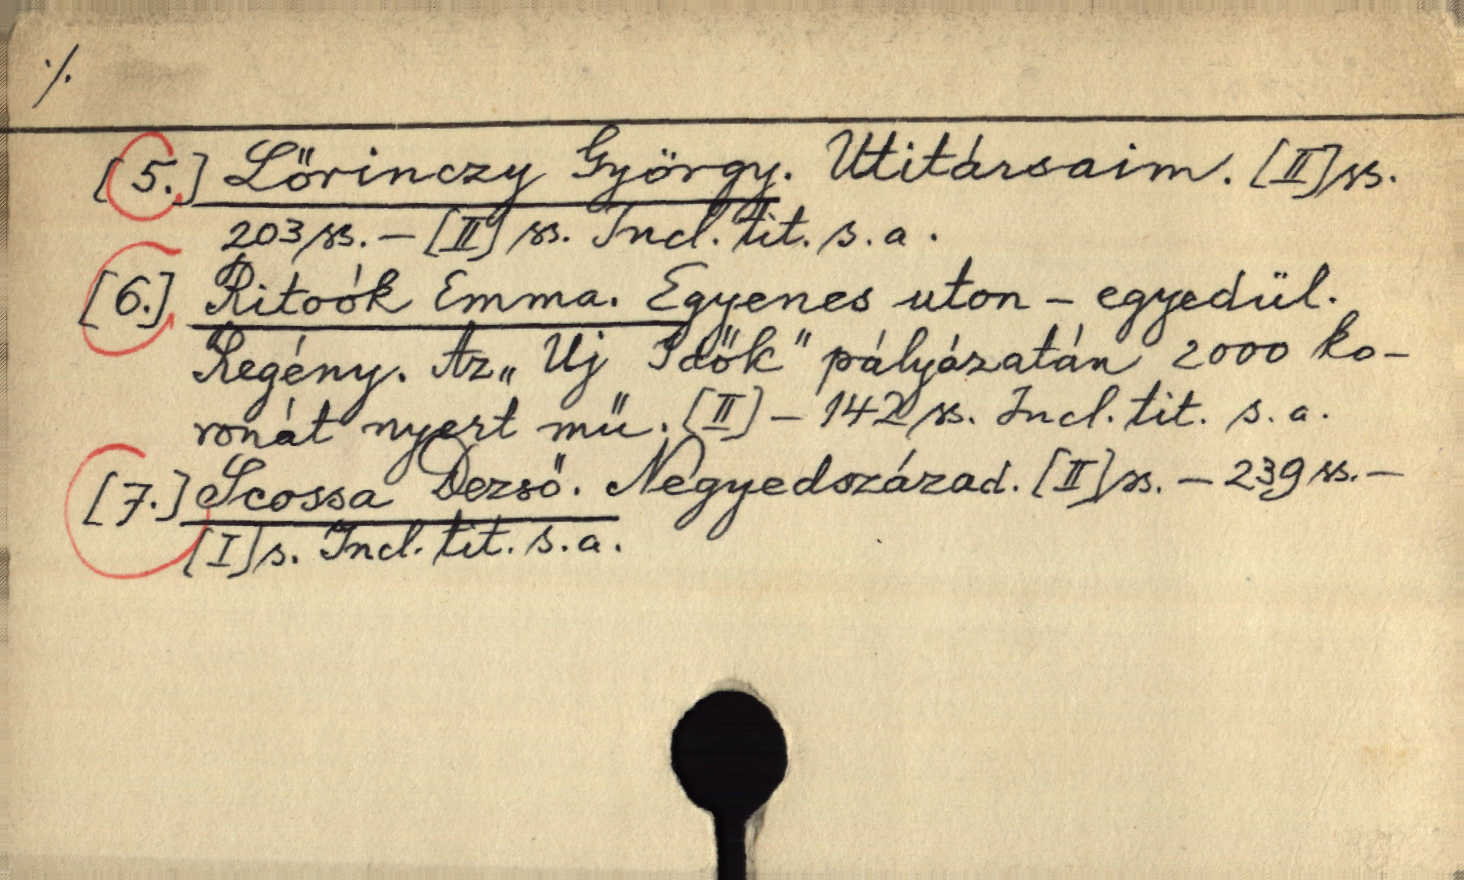 ./.
[5.] Lőrinczy György. Utitársaim. [II] ss.
203 ss. – [II] ss. Incl. tit. s. a.
[6.] Ritoók Emma. Egyenes uton – egyedül.
Regény. Az „Uj Idők" pályázatán 2000 ko-
ronát nyert mű. [II] – 142 ss. Incl. tit. s. a.
[7.] Scossa Dezső. Negyedszázad. [II] ss. – 239 ss. –
[I] s. Incl. tit. s. a.